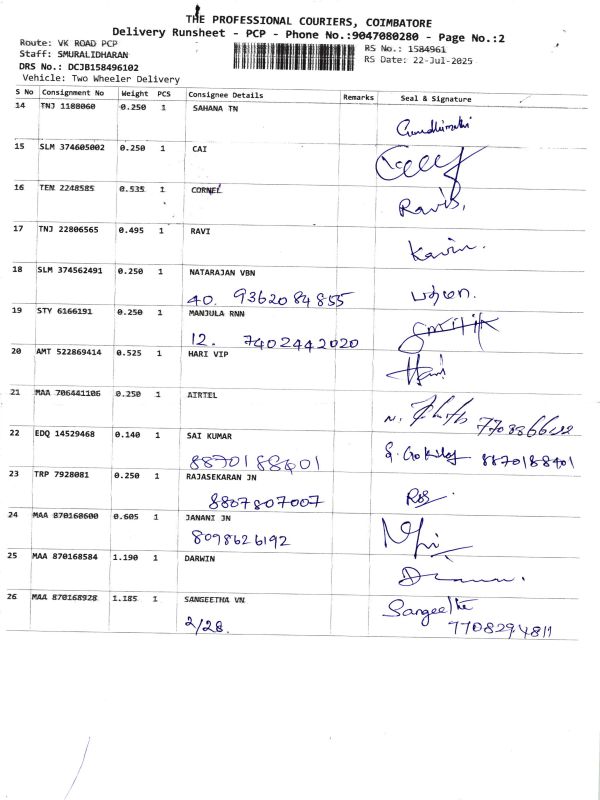 THE PROFESSIONAL COURIERS, COIMBATORE
Delivery Runsheet - PCP - Phone No.:9047080280 - Page No.:2
Route: VK ROAD PCP
RS No.: 1584961
Staff: SMURALIDHARAN
RS Date: 22-Jul-2025
DRS No.: DCJB158496102
Vehicle: Two Wheeler Delivery
S No Consignment No Weight PCS Consignee Details Remarks Seal & Signature
14 TNJ 1188060 0.250 1 SAHANA TN
15 SLM 374605002 0.250 1 CAI
16 TEN 2248585 0.535 1 CORNEL
Ravis.
17 TNJ 22806565 0.495 1 RAVI
Kavin.
18 SLM 374562491 0.250 1 NATARAJAN VBN
40. 9362084855 பத்மா.
19 STY 6166191 0.250 1 MANJULA RNN
12. 7402442020
20 AMT 522869414 0.525 1 HARI VIP
Hari
21 MAA 706441106 0.250 1 AIRTEL
22 EDQ 14529468 0.140 1 SAI KUMAR
8870188401 8870188401
23 TRP 7928081 0.250 1 RAJASEKARAN JN
8807807007
24 MAA 870160600 0.605 1 JANANI JN
8098626192
25 MAA 870168584 1.190 1 DARWIN
26 MAA 870168928 1.185 1 SANGEETHA VN
Sangeetha
2/28. 7708294811